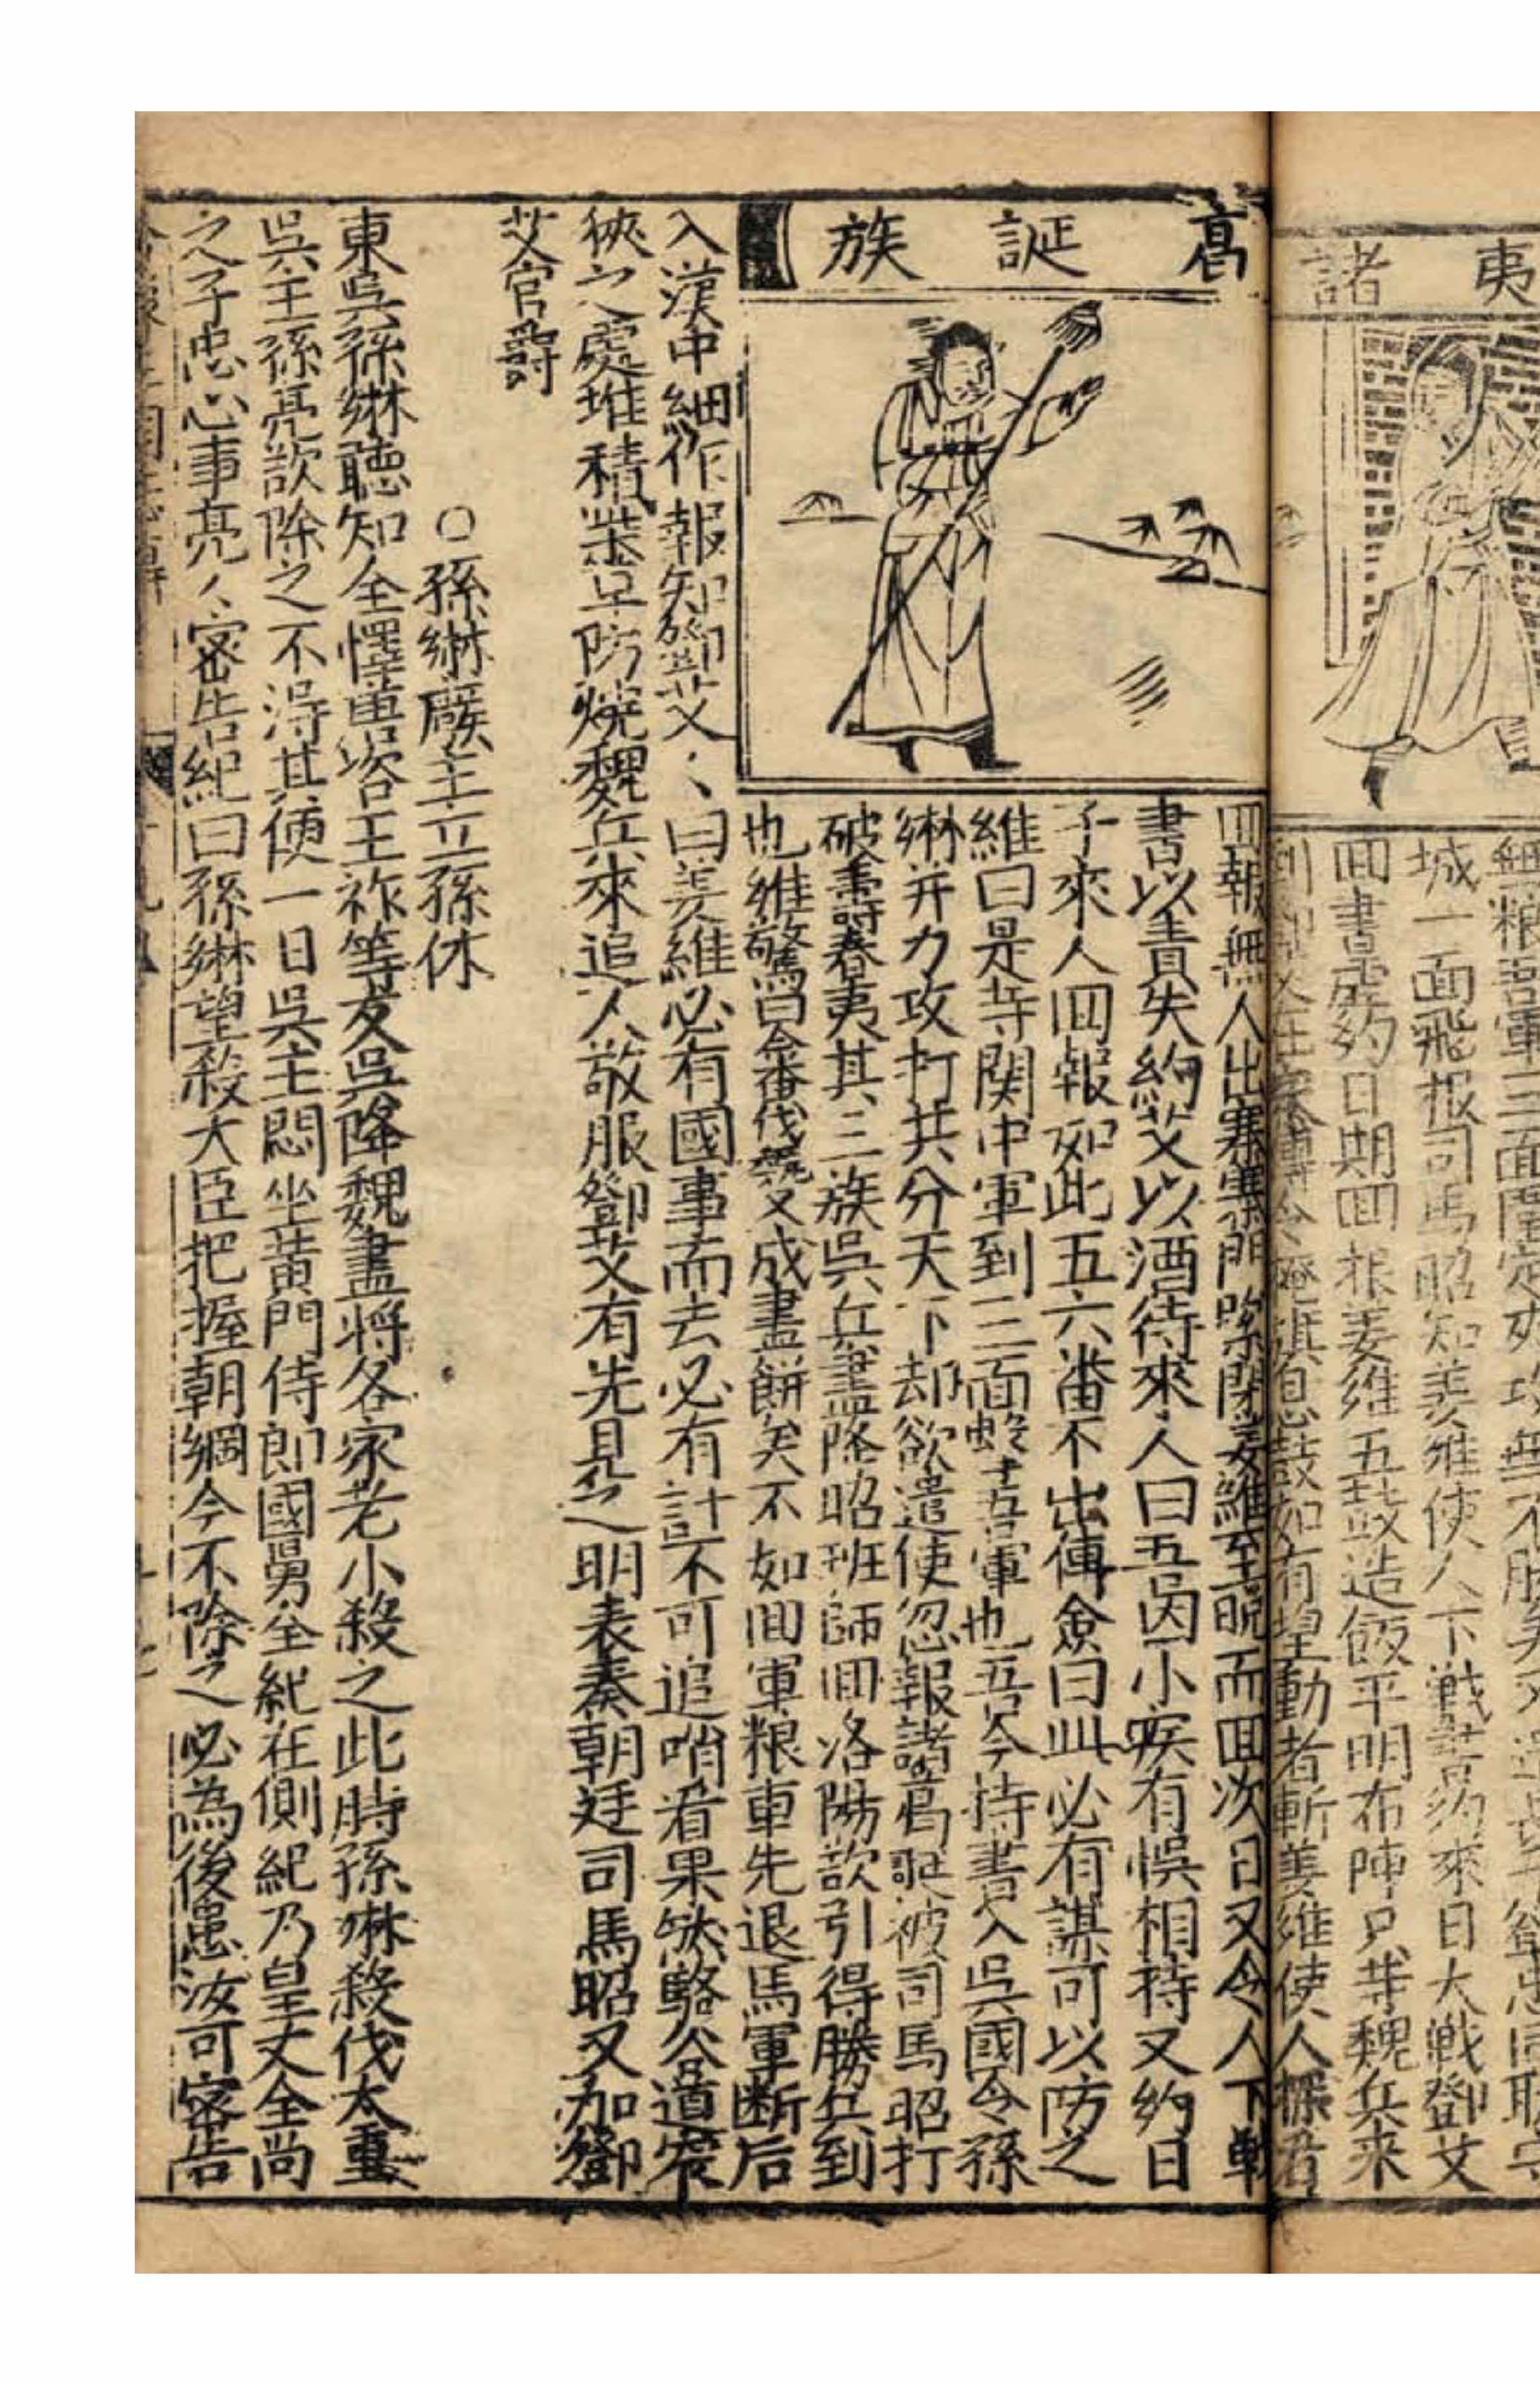 夷諸
城一面飛报司馬昭知姜維使人下戦書約來日大戦鄧艾
囬書虚約日期囬报姜維五鼓造飯平明布陣只等魏兵来
到鄧艾在寨傳令偃旗息鼓如有妄動者斬姜維使人探看
葛誕族
囬報無人出寨寨門緊閉姜維至晩而囬次日又令人下戰
書以責失約艾以酒待來人曰吾因小疾有悞相持又約日
子來人囬報如此五六番不出傅僉曰此必有謀可以防之
維曰是等関中軍到三面蛟吾軍也吾今持書入吳國令孫
綝并力攻打共分天下却欲遣使忽報諸葛誕被司馬昭打
破壽春夷其三族吳兵盡降昭班師囬洛陽欲引得勝兵到
也維驚曰今番伐魏又成畫餅矣不如囬軍粮車先退馬軍断后
入漢中細作報知鄧艾〻曰姜維必有國事而去必有計不可追哨看果然駱谷道窄
狹之處堆積柴草防燒魏兵來追人人敬服鄧艾有先見之明表奏朝廷司馬昭又加鄧
艾官爵
○孫綝廢主立孫休
東吳孫綝聽知全懌唐咨王祚等反吳降魏盡將各家老小殺之此時孫綝殺伐太重
吳主孫亮欲除之不得其便一日吳主悶坐黄門侍郎國舅全紀在側紀乃皇丈全尚
之子忠心事亮〻密告紀曰孫綝望殺大臣把握朝綱今不除之必為後患汝可密告